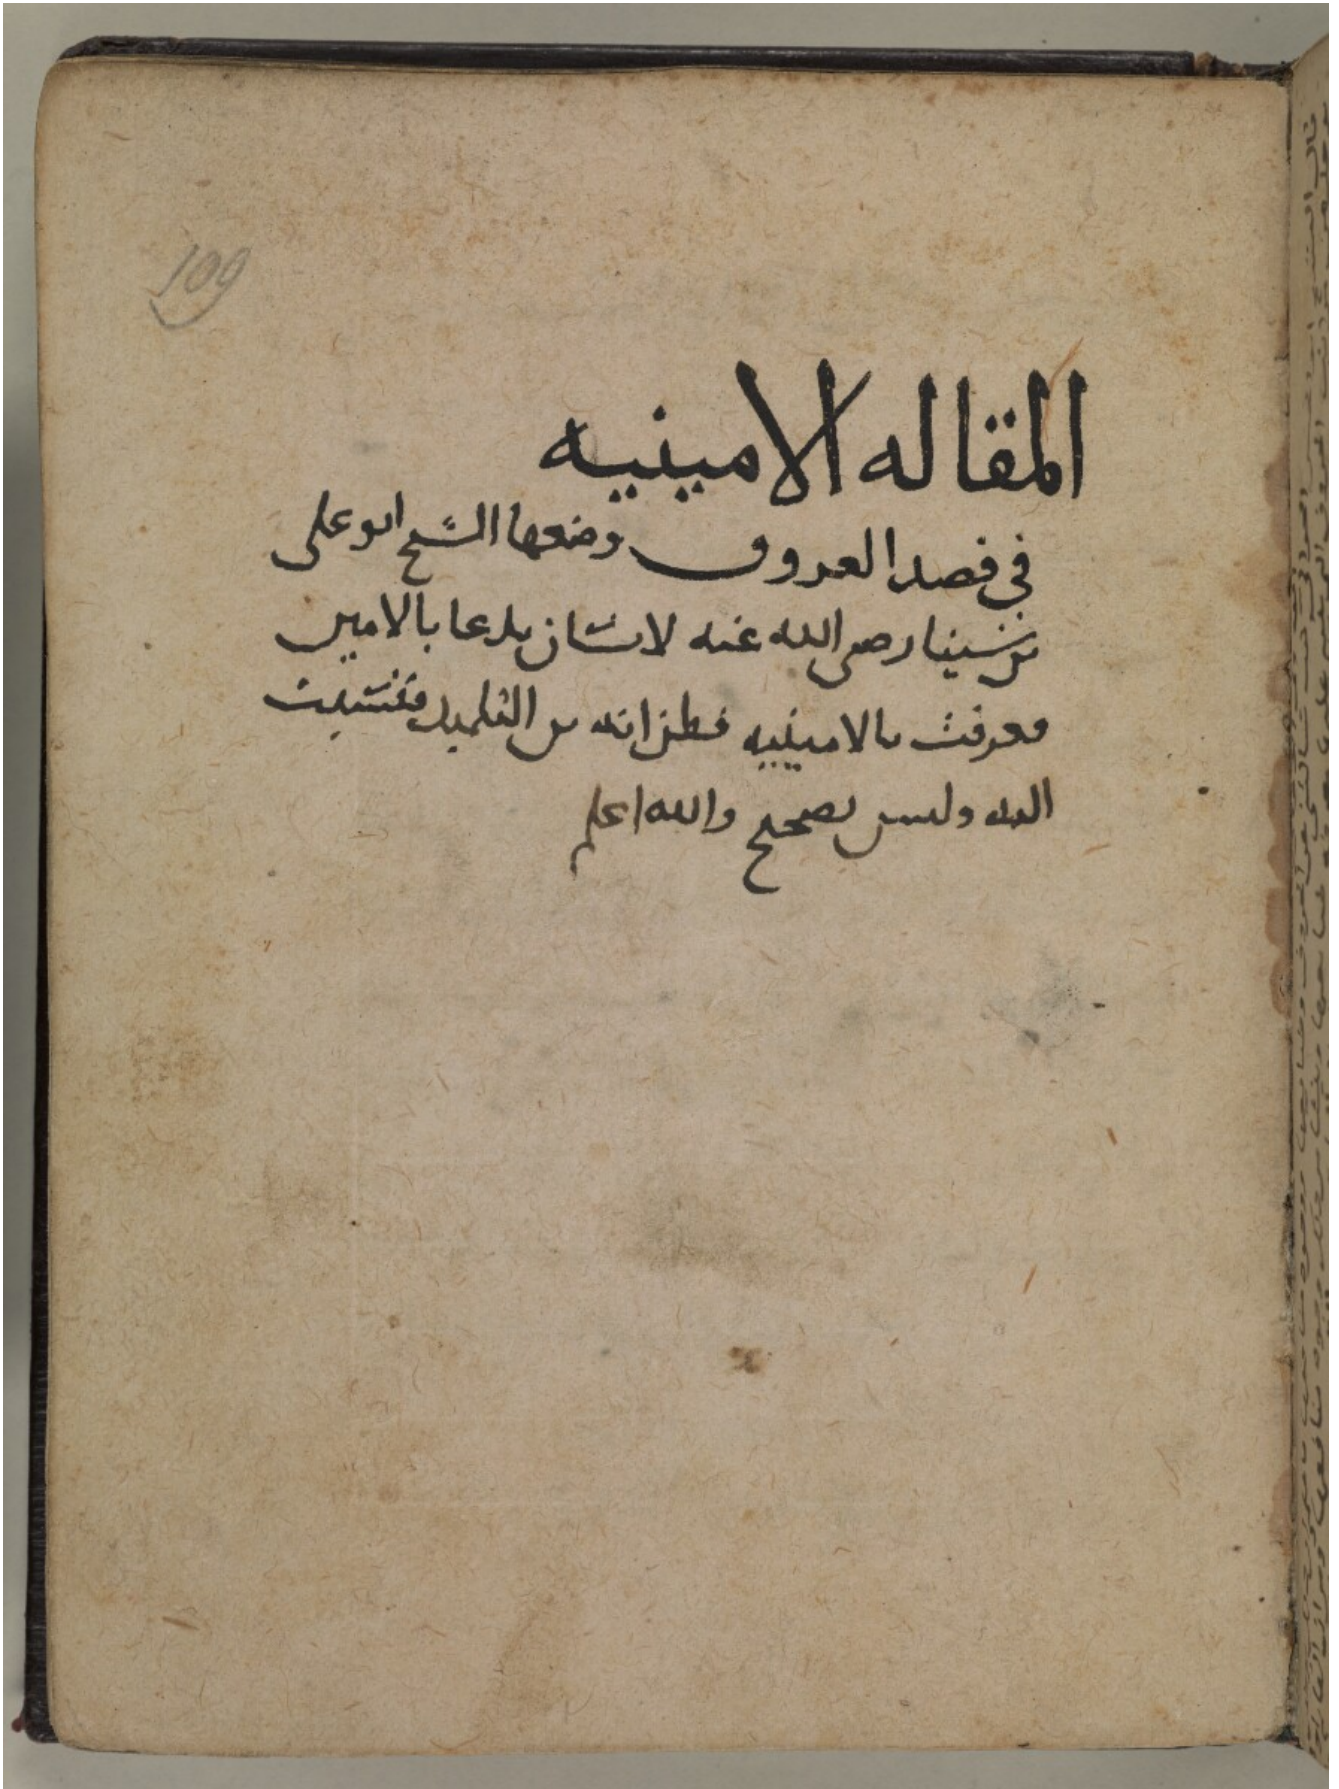 109
المقاله الامينيه
في فصد العروق وضعها الشيخ ابو على
بن سينا رضى الله عنه لانسان يدعا بالامين
فعرفت بالامينيه فظن انه بن التلميد فنسبت
اليه وليس بصحيح والله اعلم